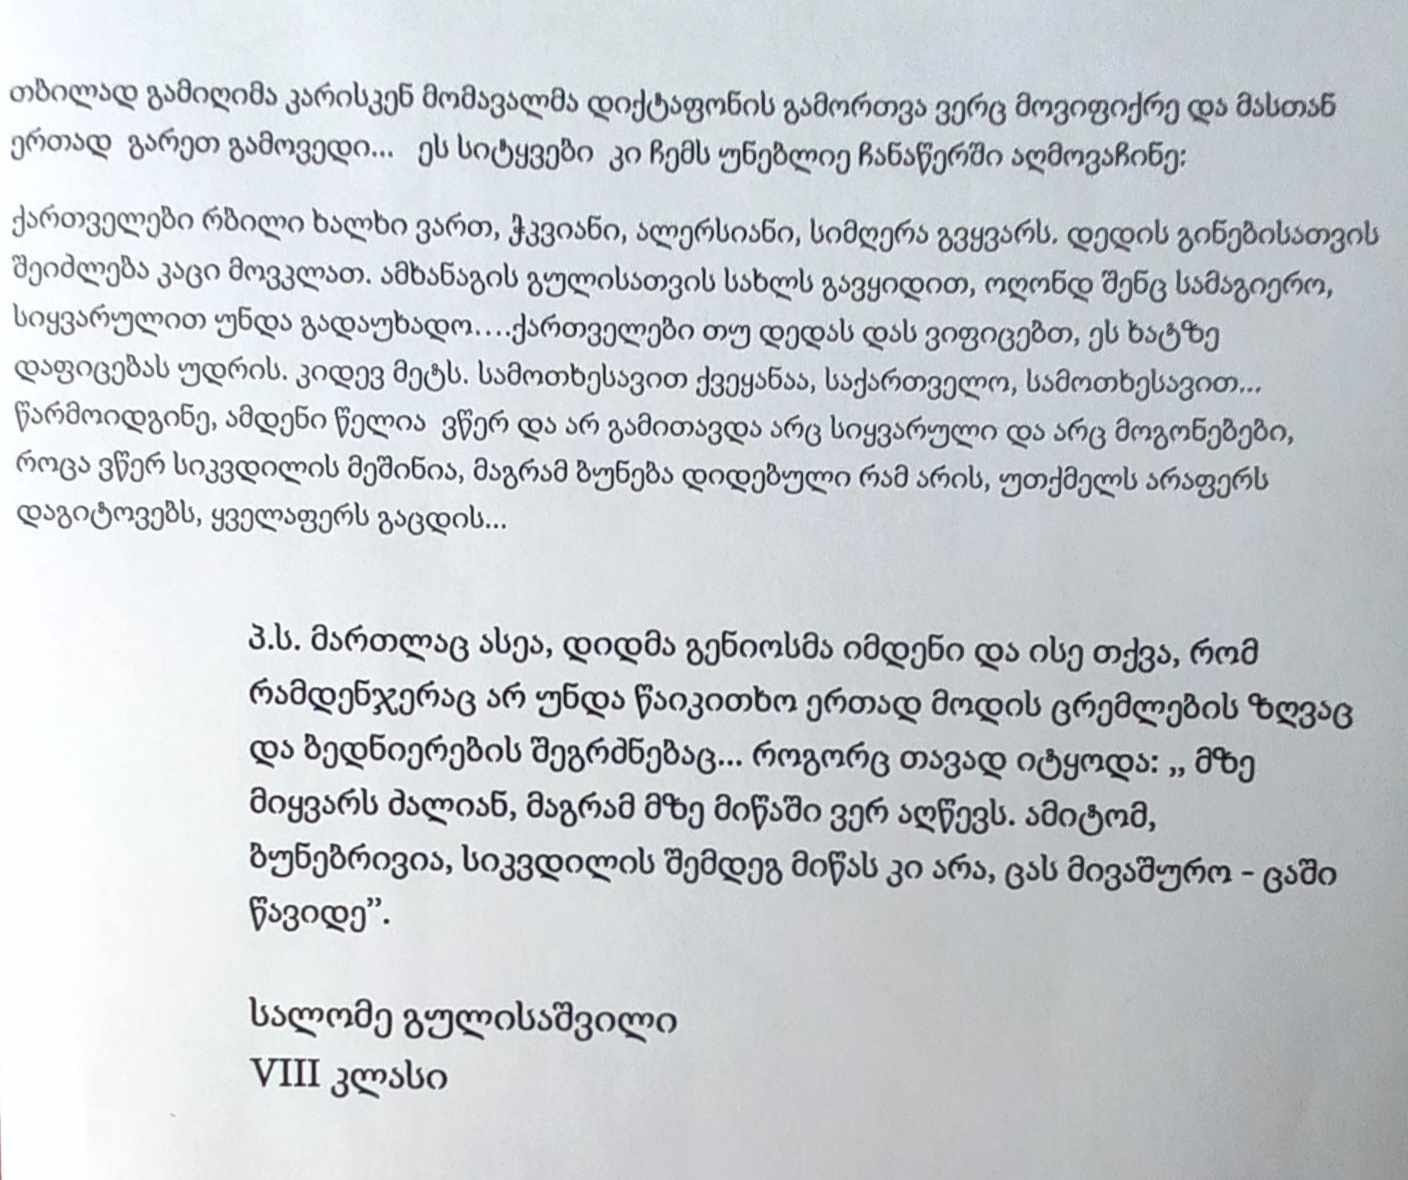 თბილად გამიღიმა კარისკენ მომავალმა დიქტაფონის გამორთვა ვერც მოვიფიქრე და მასთან
ერთად გარეთ გამოვედი... ეს სიტყვები კი ჩემს უნებლიე ჩანაწერში აღმოვაჩინე:
ქართველები რბილი ხალხი ვართ, ჭკვიანი, ალერსიანი, სიმღერა გვყვარს. დედის გინებისათვის
შეიძლება კაცი მოვკლათ. ამხანაგის გულისათვის სახლს გავყიდით, ოღონდ შენც სამაგიერო,
სიყვარულით უნდა გადაუხადო....ქართველები თუ დედას დას ვიფიცებთ, ეს ხატზე
დაფიცებას უდრის. კიდევ მეტს. სამოთხესავით ქვეყანაა, საქართველო, სამოთხესავით...
წარმოიდგინე, ამდენი წელია ვწერ და არ გამითავდა არც სიყვარული და არც მოგონებები,
როცა ვწერ სიკვდილის მეშინია, მაგრამ ბუნება დიდებული რამ არის, უთქმელს არაფერს
დაგიტოვებს, ყველაფერს გაცდის...
პ.ს. მართლაც ასეა, დიდმა გენიოსმა იმდენი და ისე თქვა, რომ
რამდენჯერაც არ უნდა წაიკითხო ერთად მოდის ცრემლების ზღვაც
და ბედნიერების შეგრძნებაც... როგორც თავად იტყოდა: ,, მზე
მიყვარს ძალიან, მაგრამ მზე მიწაში ვერ აღწევს. ამიტომ,
ბუნებრივია, სიკვდილის შემდეგ მიწას კი არა, ცას მივაშურო - ცაში
წავიდე”.
სალომე გულისაშვილი
VIII კლასი